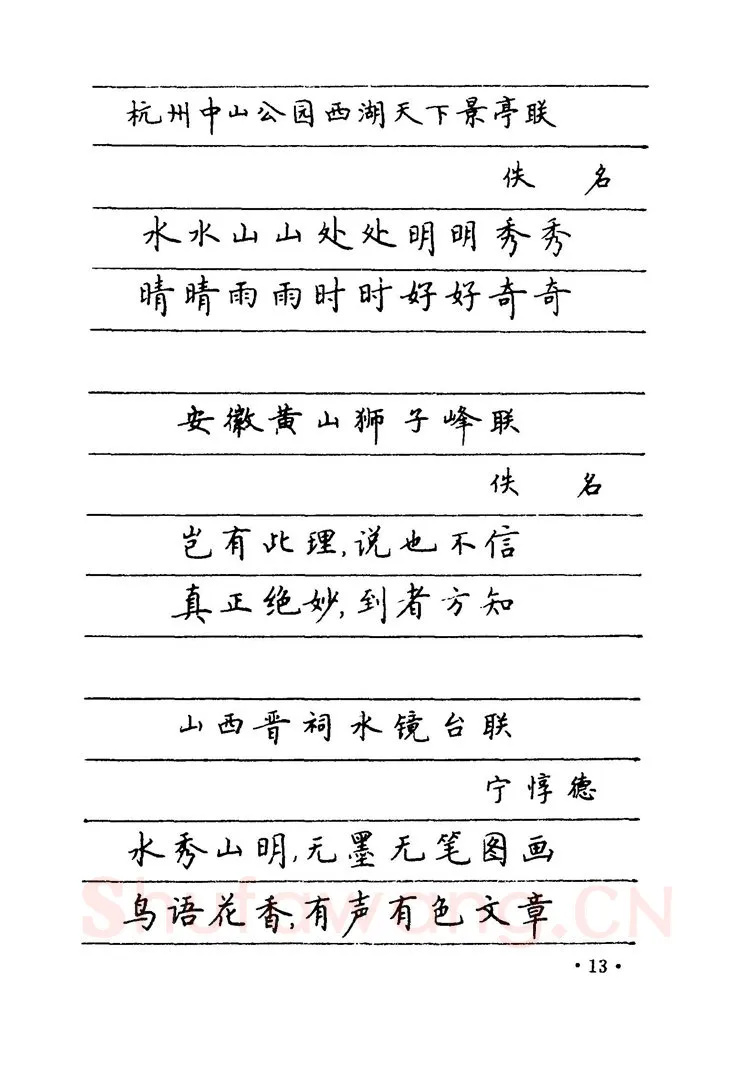 杭州中山公园西湖天下景亭联
佚 名
水水山山处处明明秀秀
晴晴雨雨时时好好奇奇
安徽黄山狮子峰联
佚 名
岂有此理,说也不信
真正绝妙,到者方知
山西晋祠水镜台联
宁惇德
水秀山明,无墨无笔图画
鸟语花香,有声有色文章
Shufawang.CN
·13·